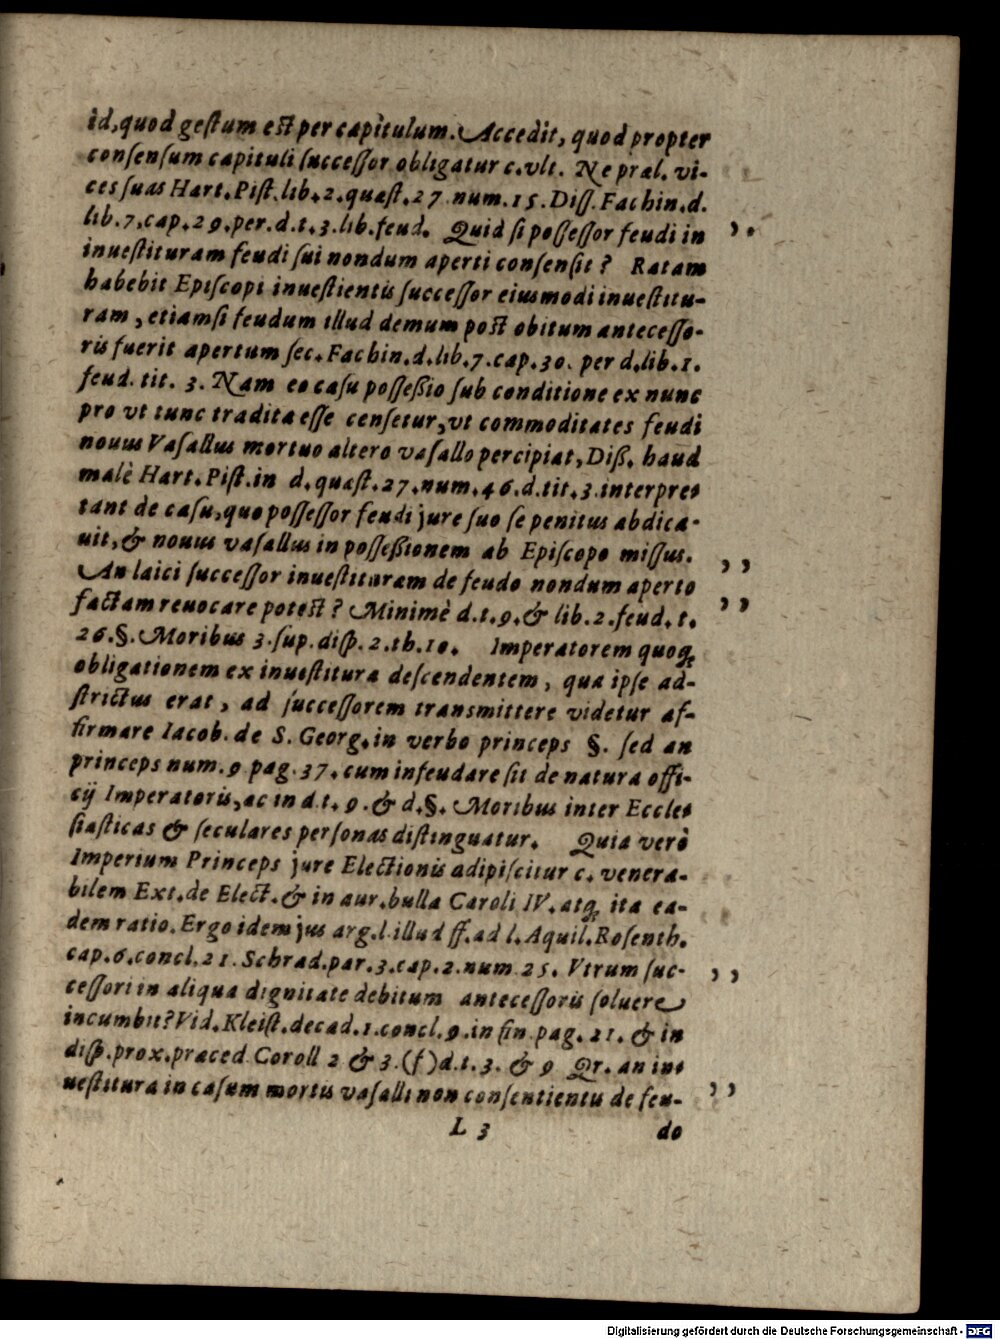 id, quod geſtum eſt per capìtulum. Accedit, quod propter
conſenſum capituli ſucceſſor obligatur c. vlt. Ne præl. vi-
ces ſuas Hart. Piſt. lib. 2. quæſt. 27 num. 15. Diſſ. Fachin. d.
lib. 7. cap. 29. per. d. t. 3. lib. feud. Quid ſi poſſeſſor feudi in
inueſtituram feudi ſui nondum aperti conſenſit? Ratam
habebit Epiſcopi inueſtientis ſucceſſor eiusmodi inueſtitu-
ram, etiamſi feudum illud demum poſt obitum anteceſſo-
ris fuerit apertum ſec. Fachin. d. lib. 7. cap. 30. per d. lib. 1.
feud. tit. 3. Nam eo caſu poſſeßio ſub conditione ex nunc
pro vt tunc tradita eſſe cenſetur, vt commoditates feudi
nouus Vaſallus mortuo altero vaſallo percipiat, Diß. haud
malè Hart. Piſt. in d. quæſt. 27. num. 46. d. tit. 3. interpre-
tant de caſu, quo poſſeſſor feudi jure ſuo ſe penitus abdica-
uit, & nouus vaſallus in poſſeßionem ab Epiſcopo miſſus.
An laici ſucceſſor inueſtituram de feudo nondum aperto
factam reuocare poteſt? Minimè d. t. 9. & lib. 2. feud. t.
26. §. Moribus 3. ſup. diſp. 2. th. 10. Imperatorem quoq;
obligationem ex inueſtitura deſcendentem, qua ipſe ad-
ſtrictus erat, ad ſucceſſorem transmittere videtur af-
firmare Iacob. de S. Georg. in verbo princeps §. ſed an
princeps num. 9 pag. 37. cum infeudare ſit de natura offi-
cij Imperatoris, ac in d. t. 9. & d. §. Moribus inter Eccle-
ſiaſticas & ſeculares perſonas diſtinguatur. Quia verò
Imperium Princeps jure Electionis adipiſcitur c. venera-
bilem Ext. de Elect. & in aur. bulla Caroli IV. atq; ita ea-
dem ratio. Ergo idem jus arg. l. illud ff. ad l. Aquil. Roſenth.
cap. 6. concl. 21. Schrad. par. 3. cap. 2. num 25. Vtrum ſuc-
ceſſori in aliqua dignitate debitum anteceſſoris ſoluere
incumbit? Vid. Kleiſt. decad. 1. concl. 9. in fin. pag. 21. & in
diſp. prox. præced. Coroll 2 & 3. (f) d. t. 3. & 9 Qr. an in-
ueſtitura in caſum mortis vaſalli non conſentientis de feu-
L 3 do
Digitalisierung gefördert durch die Deutsche Forschungsgemeinschaft - DFG